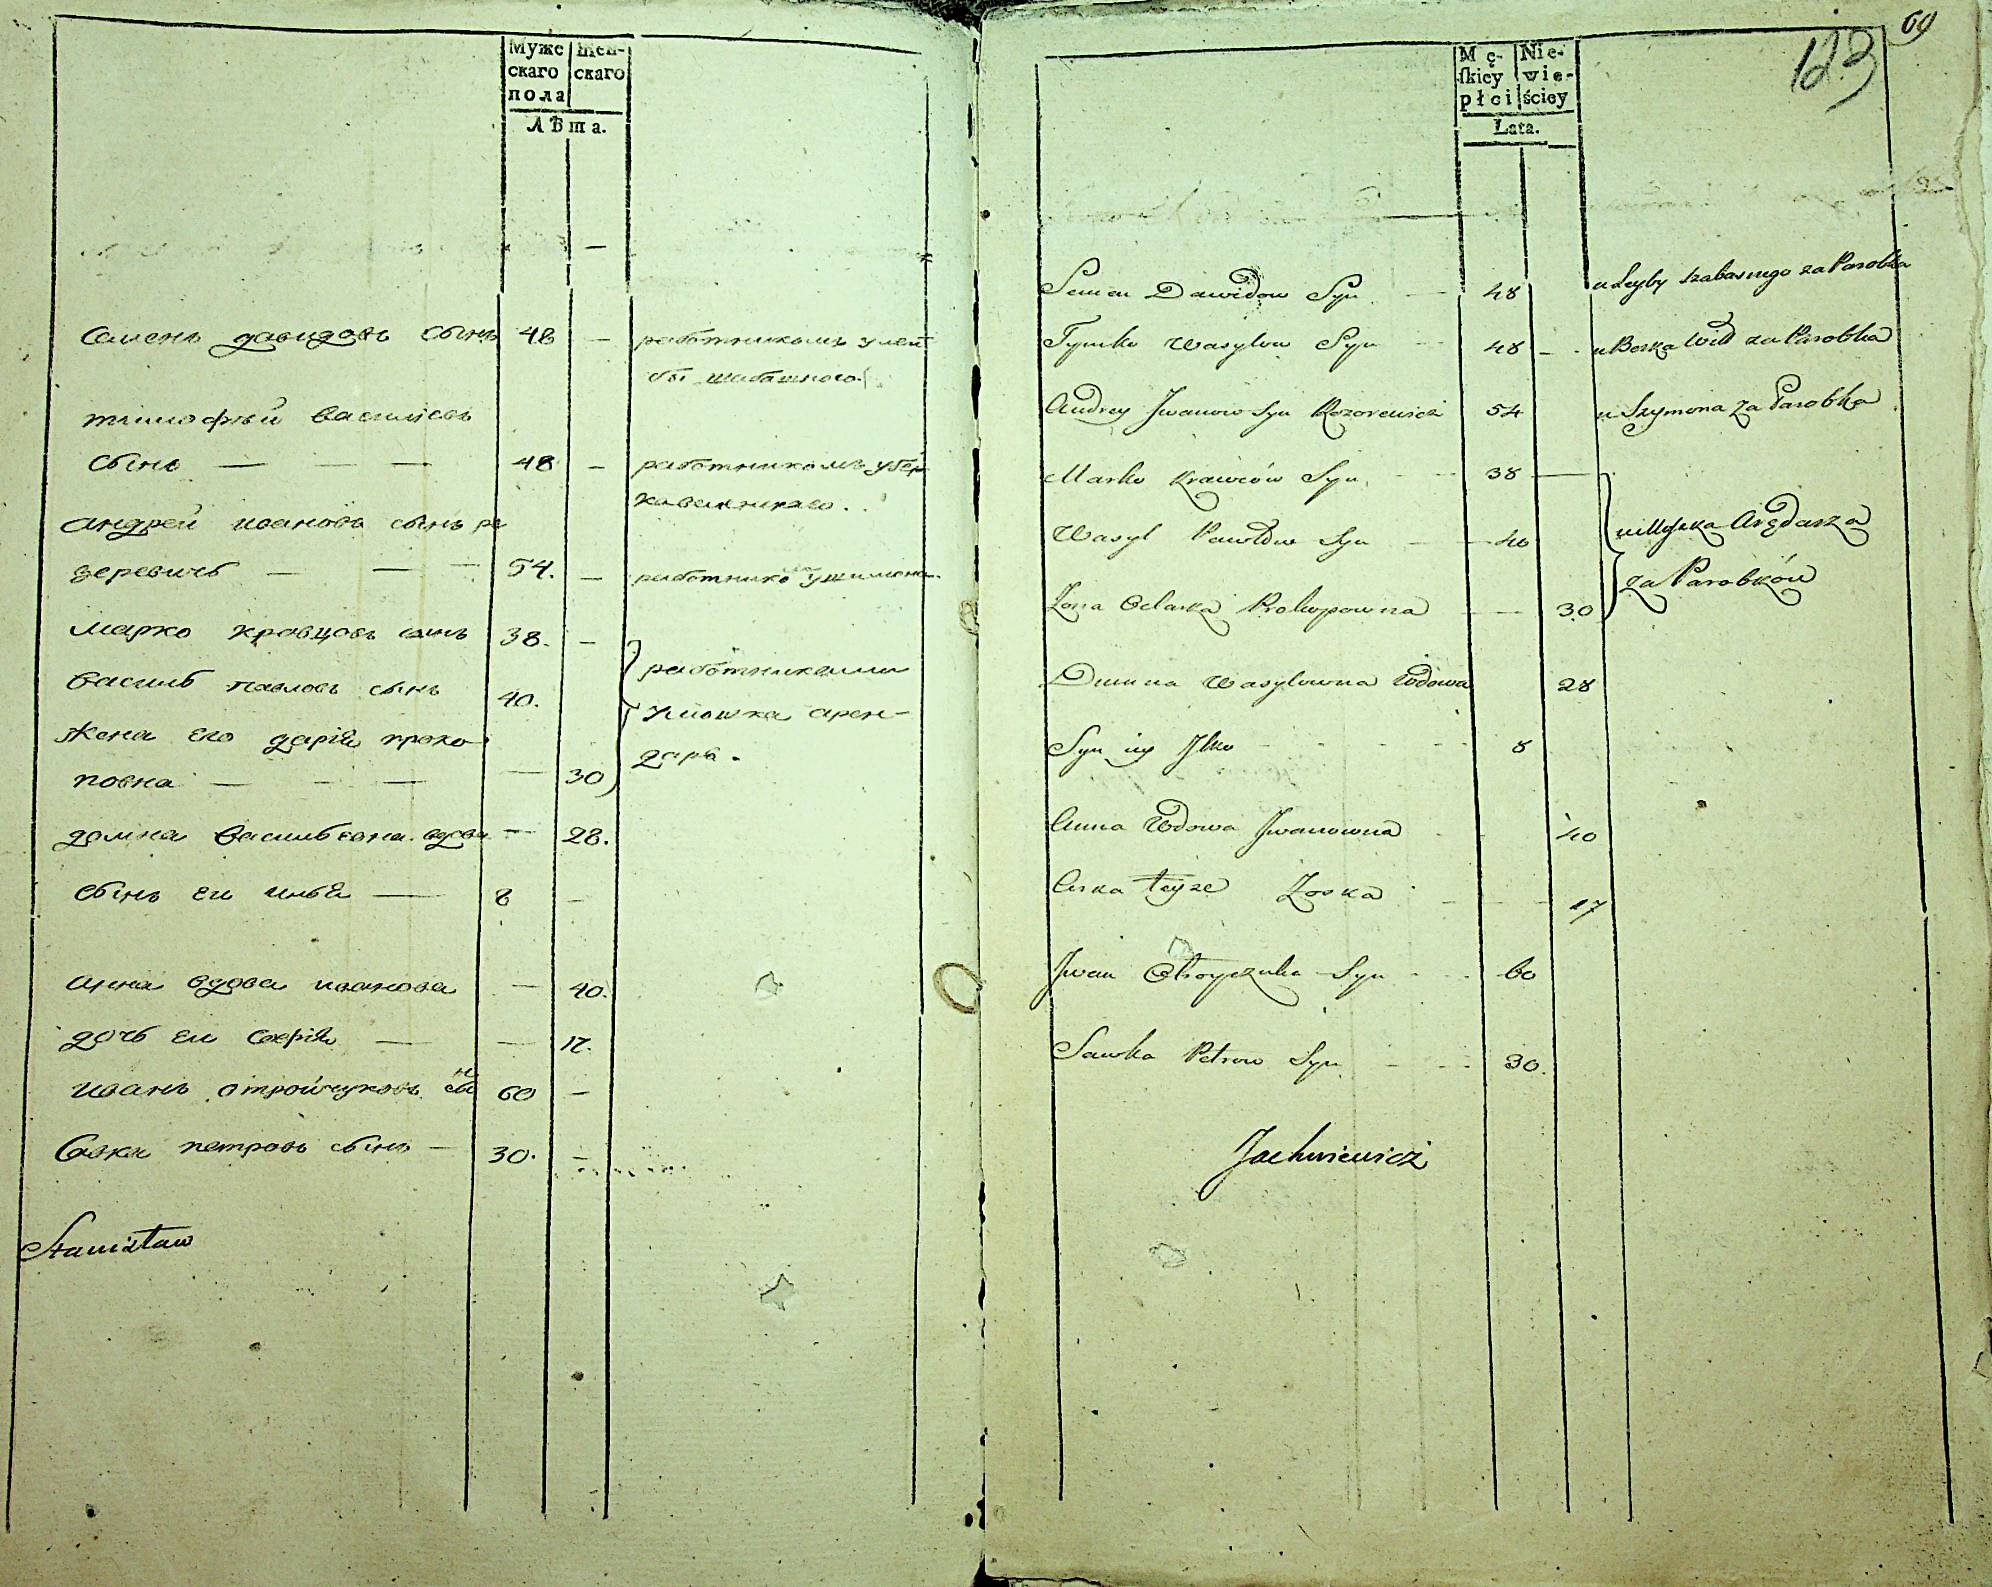 Муже Жен-
скаго скаго
пола
Лѣта.
Семенъ давидовъ сынъ 48 — работникомъ улей
бы шабашного
тимофѣй василіевъ
сынъ — — — 48 — работникомъ у бер
ка
андрей ивановъ сынъ ро
зеревичь — — — 54. — работнико у шимона.
марко кравцовъ сынъ 38. —
василь павловъ сынъ 40. работниками
жена его дарія проко- умошка арен-
повна — — — — 30 даря.
домна васильевна вдова — 28.
сынъ еи илья — 8 —
анна вдова иванова — 40.
дочь еи софія — — 17.
иванъ отройчуковъ сын 60 —
Савка петровъ сынъ — 30. —
Stanisław
69
123
Mę- Nie-
skiey wie-
płci ściey
Lata.
Semen Dawidow Syn — 48 u Leyby szabasnego za Parobka
Tymko Wasylow Syn — 48 — u Berka za Parobka
Andrey Jwanow Syn Rozorewicz 54 u Szymona za Parobka
Marko Krawców Syn — 38 —
Wasyl Pawłow Syn — — 40 u Moszka Arędarza
Żona Prokopowna — — 30 za Parobków
Dumna Wasylowna Wdowa 28
Syn iey Jlko - - - - 8
Anna Wdowa Jwanowna - - 40
Curka teyże Zoska - - - 17
Jwan Otroyczuka Syn - - 60
Sawka Petrow Syn - - - 30.
Jachniewicz